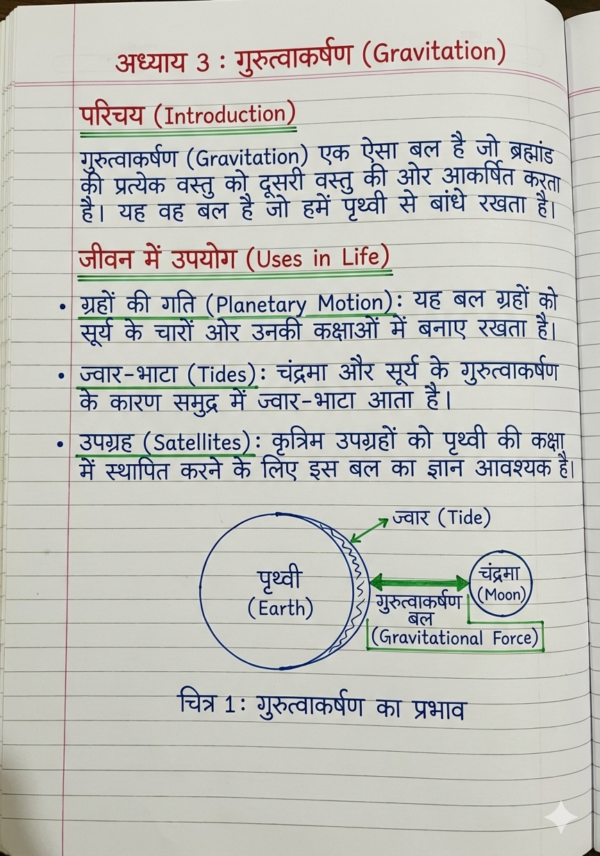 अध्याय 3 : गुरुत्वाकर्षण (Gravitation)
परिचय (Introduction)
गुरुत्वाकर्षण (Gravitation) एक ऐसा बल है जो ब्रह्मांड
की प्रत्येक वस्तु को दूसरी वस्तु की ओर आकर्षित करता
है। यह वह बल है जो हमें पृथ्वी से बांधे रखता है।
जीवन में उपयोग (Uses in Life)
• ग्रहों की गति (Planetary Motion): यह बल ग्रहों को
सूर्य के चारों ओर उनकी कक्षाओं में बनाए रखता है।
• ज्वार-भाटा (Tides): चंद्रमा और सूर्य के गुरुत्वाकर्षण
के कारण समुद्र में ज्वार-भाटा आता है।
• उपग्रह (Satellites): कृत्रिम उपग्रहों को पृथ्वी की कक्षा
में स्थापित करने के लिए इस बल का ज्ञान आवश्यक है।
ज्वार (Tide)
पृथ्वी
(Earth)
चंद्रमा
(Moon)
गुरुत्वाकर्षण
बल
(Gravitational Force)
चित्र 1: गुरुत्वाकर्षण का प्रभाव